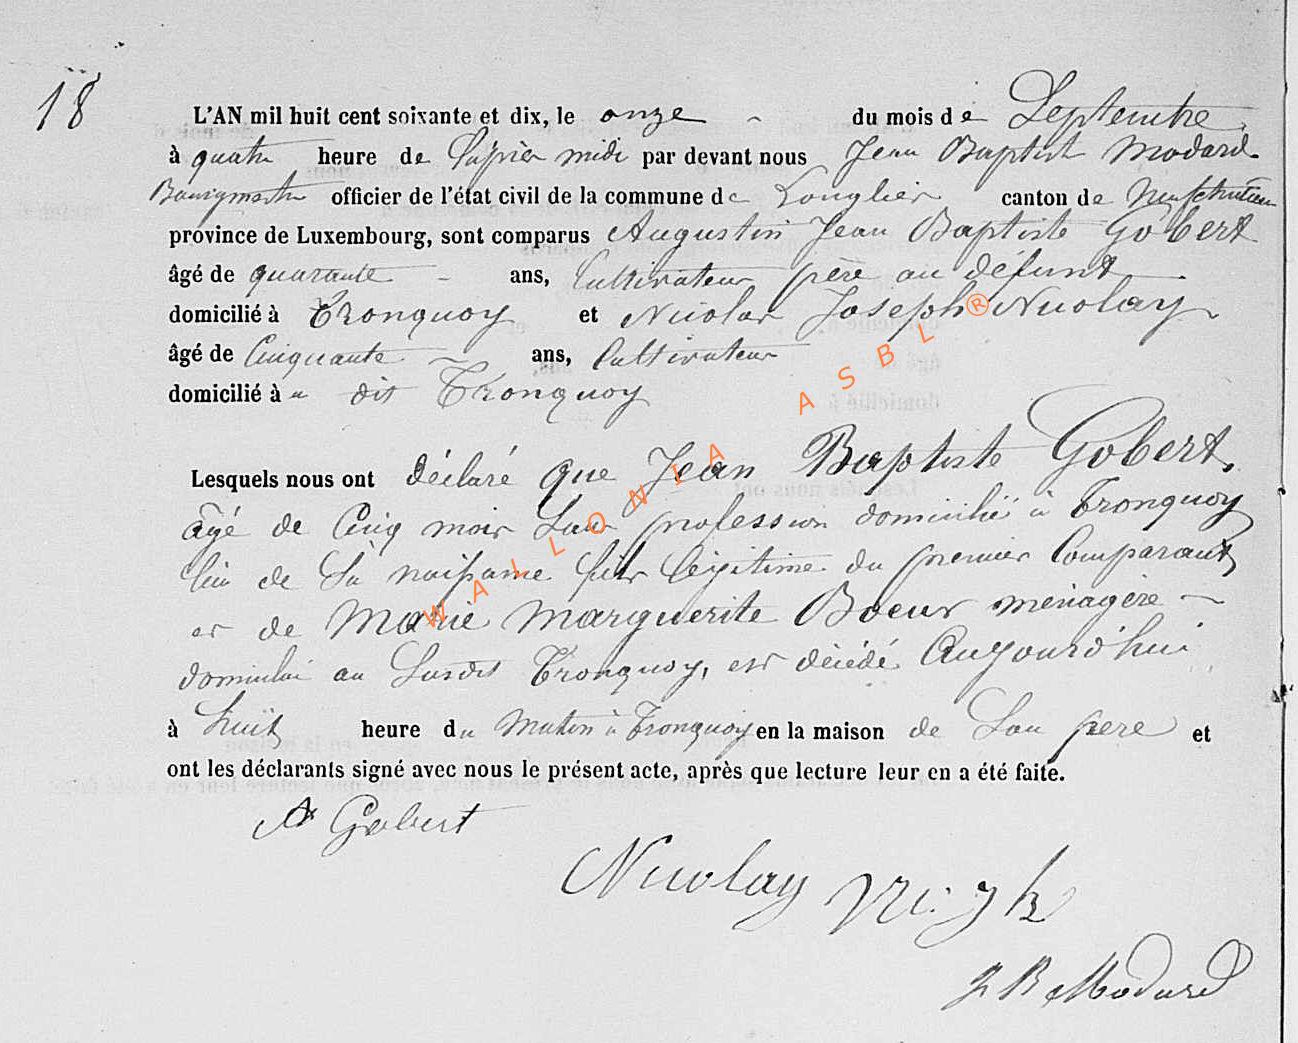 18
L'AN mil huit cent soixante et dix, le onze du mois de Septembre
à quatre heure de l'aprier midi par devant nous Jean Baptist Modard
Bourgmestre officier de l'état civil de la commune de Longlier canton de Neufchateau
province de Luxembourg, sont comparus Augustin Jean Baptiste Gobert
âgé de quarante ans, Cultivateur père au défunt
domicilié à Tronquoy et Nicolas Joseph Nicolay
âgé de Cinquante ans, Cultivateur
domicilié à dit Tronquoy
Lesquels nous ont déclaré que Jean Baptiste Gobert,
âgé de Cinq mois San profession domicilié à Tronquoy
lieu de Sa naissance fils légitime du premier Comparant
et de Marie Marguerite Boeur ménagère
domicilié au Susdit Tronquoy, est décédé Aujourd'hui
à huit heure du Matin à Tronquoy en la maison de Son père et
ont les déclarants signé avec nous le présent acte, après que lecture leur en a été faite.
A Gobert
Nicolay
J B Modard
WALLONIA ASBL ®